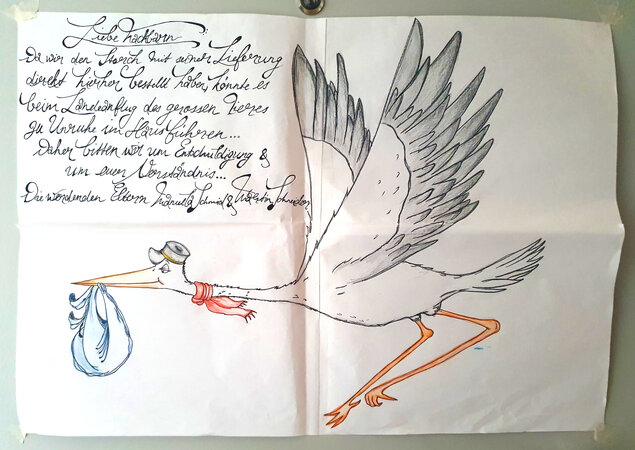 Liebe Nachbarn
Da wir den Storch mit seiner Lieferung
direkt hierher bestellt haben, könnte es
beim Landeanflug des grossen Tieres
zu Unruhe im Haus führen...
Daher bitten wir um Entschuldigung &
um euer Verständnis...
Die werdenden Eltern Schmid &